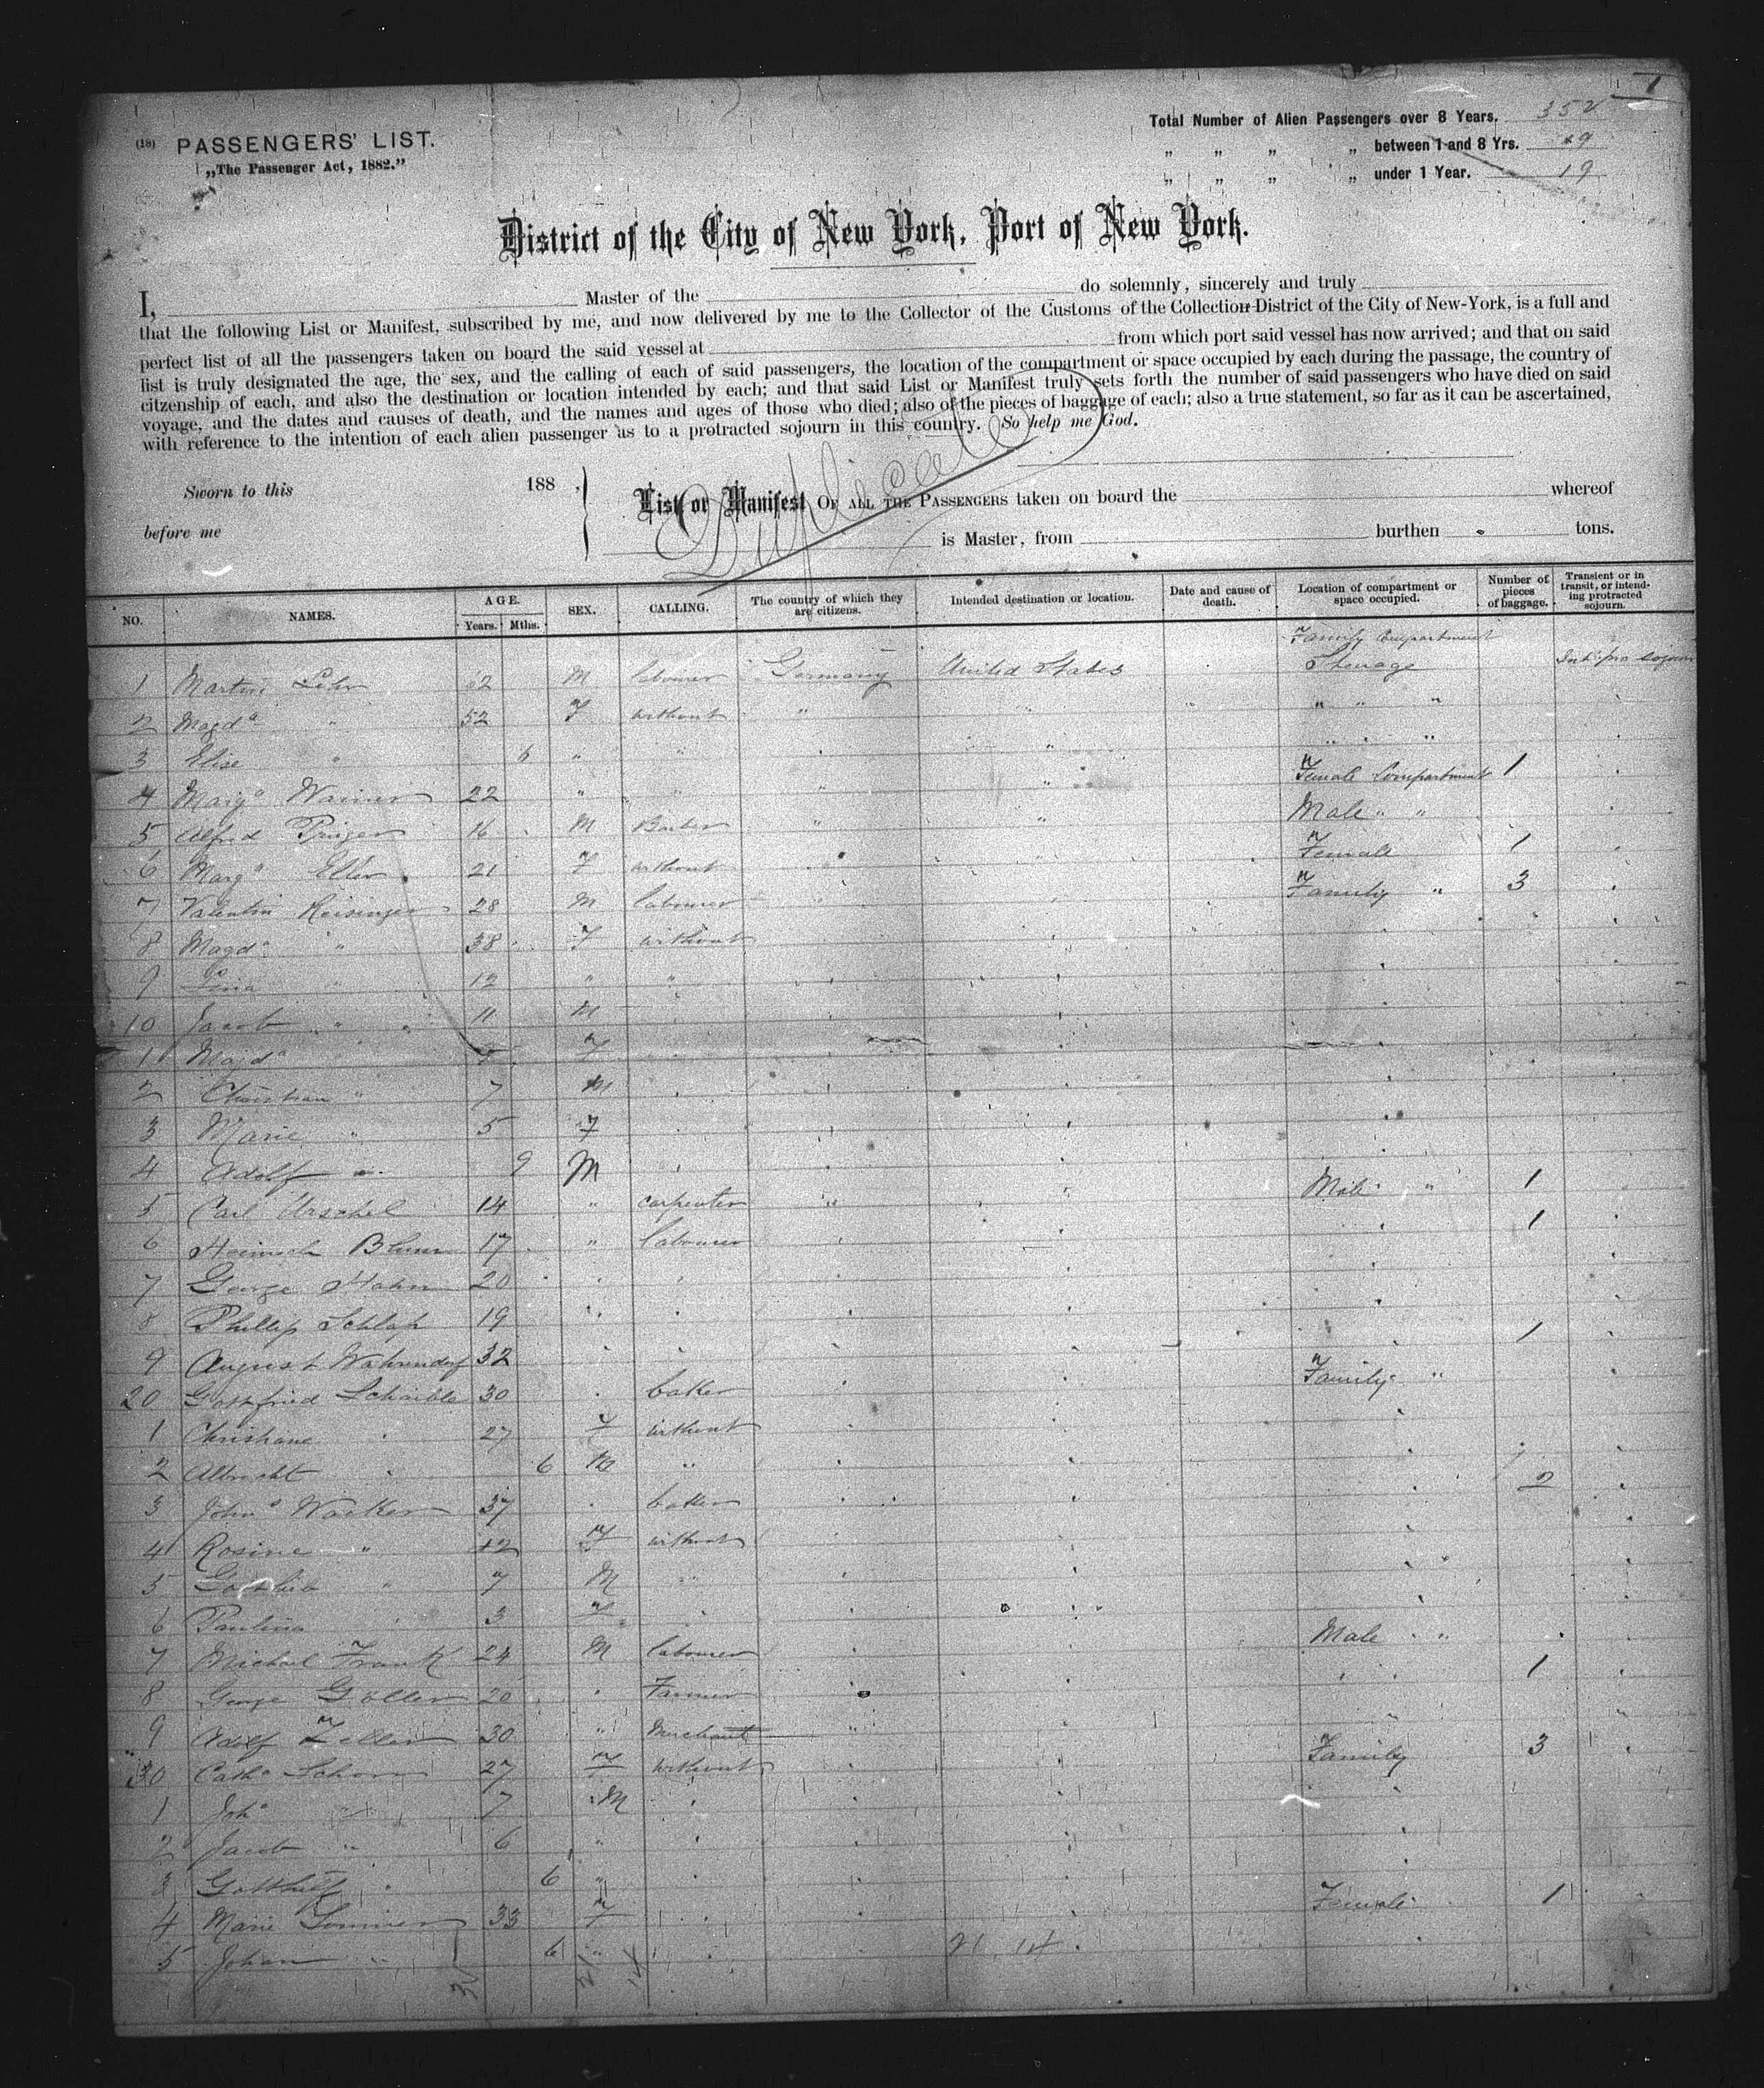 1
(18) PASSENGERS' LIST.
„The Passenger Act, 1882."
Total Number of Alien Passengers over 8 Years. 352
„ „ „ „ between 1 and 8 Yrs. 49
„ „ „ „ under 1 Year. 19
District of the City of New York, Port of New York.
I, Master of the do solemnly, sincerely and truly
that the following List or Manifest, subscribed by me, and now delivered by me to the Collector of the Customs of the Collection-District of the City of New-York, is a full and
perfect list of all the passengers taken on board the said vessel at from which port said vessel has now arrived; and that on said
list is truly designated the age, the sex, and the calling of each of said passengers, the location of the compartment or space occupied by each during the passage, the country of
citzenship of each, and also the destination or location intended by each; and that said List or Manifest truly sets forth the number of said passengers who have died on said
voyage, and the dates and causes of death, and the names and ages of those who died; also of the pieces of baggage of each; also a true statement, so far as it can be ascertained,
with reference to the intention of each alien passenger as to a protracted sojourn in this country. So help me God.
Duplicate
Sworn to this 188 ,
before me
List or Manifest OF ALL THE PASSENGERS taken on board the whereof
is Master, from burthen tons.
NO. NAMES. AGE. Years. Mths. SEX. CALLING. The country of which they are citizens. Intended destination or location. Date and cause of death. Location of compartment or space occupied. Number of pieces of baggage. Transient or in transit, or intending protracted sojourn.
Family Compartment
1 Martin Lehr 62 M labourer Germany United States Steerage Int. pro sojourn
2 Magda " 52 F without " " " " "
3 Elise " 6 " " " " "
4 Marga 22 " " " " Female Compartment 1
5 Alfred 16 M Barber " " Male " "
6 Marga 21 F without Female 1
7 Valentin Reisinger 28 M labourer Family " 3
8 Magda " 38 F without
9 Lina " 12 " "
10 Jacob " 11 M
1 Magda F
2 Christian " 7 M
3 Marie " 5 F
4 Adolf " 9 M
5 Carl Urschel 14 " carpenter " Male " 1
6 Heinrich Blum 17 " labourer 1
7 George Hahn 20
8 Phillip Schlap 19
9 August Wahrendorf 32 1
20 Gottfried Schaible 30 baker Family "
1 Christiane 27 F without
2 Albrecht 6 M "
3 Johns Wacker 37 baker 2
4 Rosine " 42 F without
5 Gottlieb " 7 M "
6 Paulina 3 F
7 Michael Frank 24 M labourer Male "
8 George Goller 20 Farmer 1
9 Adolf Zeller 30 " Merchant "
30 Catha Schorn 27 F without Family 3
1 Joha " 7 M
2 Jacob " 6 "
3 Gotthilf " 6 "
4 Marie Sommer 33 F Female 1
5 Johan " 6 "
21 14